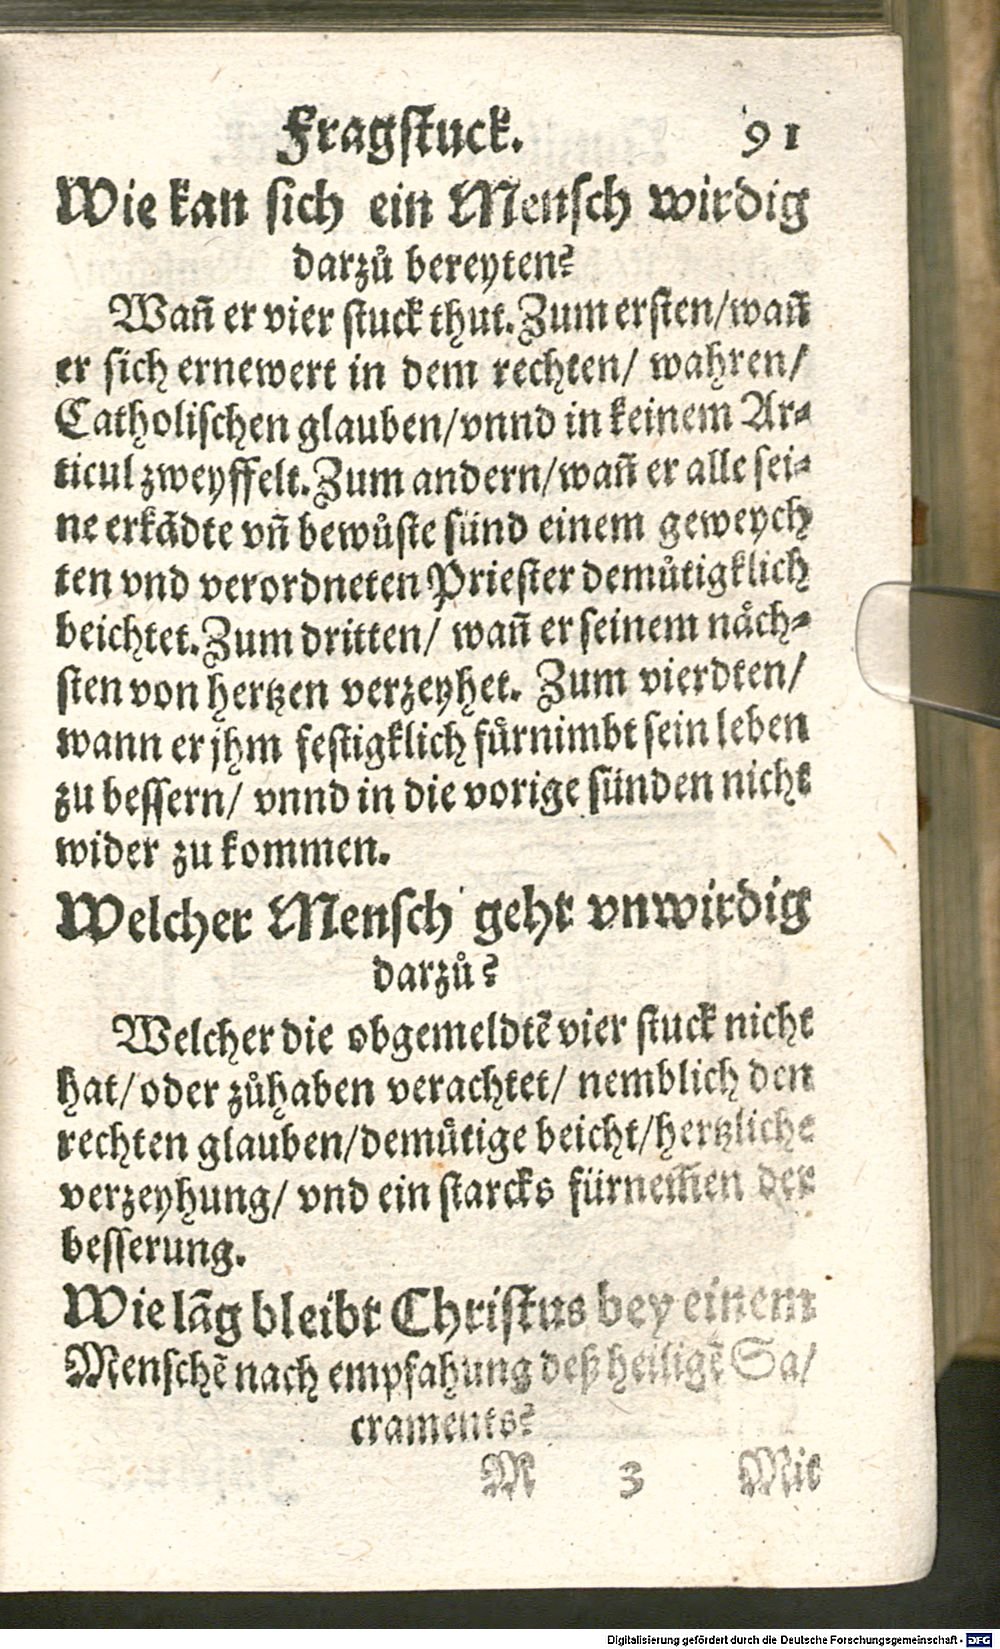 Fragstuck. 91
Wie kan sich ein Mensch wirdig
darzů bereyten?
Wañ er vier stuck thut. Zum ersten/wañ
er sich ernewert in dem rechten/ wahren/
Catholischen glauben/vnnd in keinem Ar-
ticul zweyffelt. Zum andern/wañ er alle sei-
ne erkãdte vñ bewůste sünd einem geweych
ten vnd verordneten Priester demůtigklich
beichtet. Zum dritten/ wañ er seinem nåch-
sten von hertzen verzeyhet. Zum vierdten/
wann er jhm festigklich fůrnimbt sein leben
zu bessern/ vnnd in die vorige sünden nicht
wider zu kommen.
Welcher Mensch geht vnwirdig
darzů?
Welcher die obgemeldtẽ vier stuck nicht
hat/ oder zůhaben verachtet/ nemblich den
rechten glauben/demůtige beicht/hertzliche
verzeyhung/ vnd ein starcks fürnem̃en der
besserung.
Wie lãg bleibt Christus bey einem
Menschẽ nach empfahung deß heiligẽ Sa/
craments?
M 3 Mit
Digitalisierung gefördert durch die Deutsche Forschungsgemeinschaft - DFG